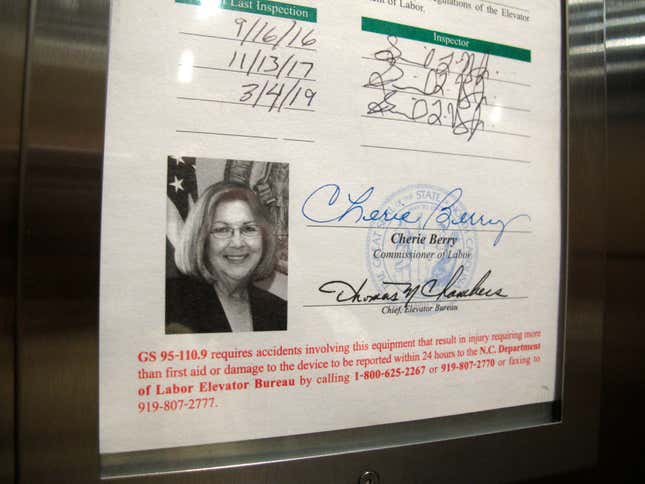 Last Inspection
of Labor.
gulations of the Elevator
Inspector
9/16/16
11/13/17
3/4/19
Cherie Berry
Cherie Berry
Commissioner of Labor
Thomas N Chambers
Chief, Elevator Bureau
GS 95-110.9 requires accidents involving this equipment that result in injury requiring more
than first aid or damage to the device to be reported within 24 hours to the N.C. Department
of Labor Elevator Bureau by calling 1-800-625-2267 or 919-807-2770 or faxing to
919-807-2777.